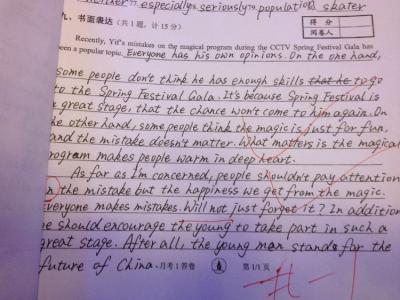 especially seriously population skater
九、书面表达（共1题，计15分）
得 分
阅卷人
Recently, Yif's mistakes on the magical program during the CCTV Spring Festival Gala has
been a popular topic. Everyone has his own opinions. On the one hand,
some people don't think he has enough skills that he to go
to the Spring Festival Gala. It's because Spring Festival is
a great stage, that the chance won't come to him again. On
the other hand, some people think the magic is just for fun,
and the mistake doesn't matter. What matters is the magical
program makes people warm in deep heart.
As far as I'm concerned, people shouldn't pay attention
the mistake but the happiness we get from the magic.
Everyone makes mistakes. Will not just forget it? In addition
we should encourage the young to take part in such a
great stage. After all, the young man stands for the
future of China.
月考1答卷 第1/1页